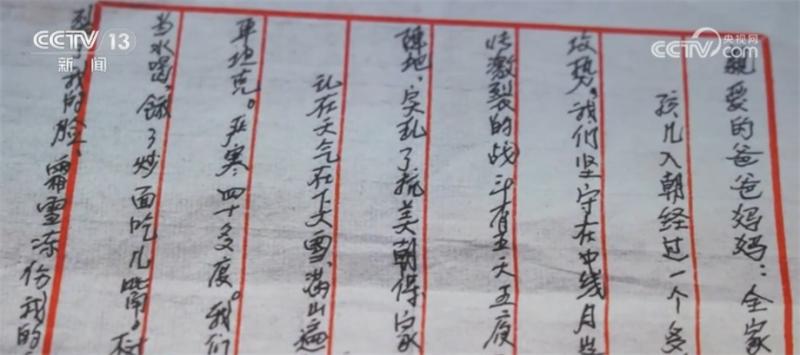 CCTV 13
新闻
CCTV 央视网
cctv.com
亲爱的爸爸妈妈：全家
孩儿入朝经过一个多
攻势。我们坚守在中线月
激裂的战斗有五天五夜
阵地，实现了抗美朝保家
现在天气在下大雪满山遍
坦克。严寒四十多度。我们
当水喝，饿了炒面吃几嘴。树
裂了我的脸，霜雪冻份我的